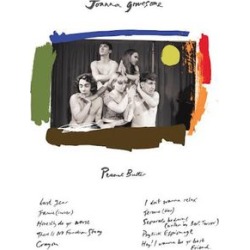 Joanna gruesome
Peanut Butter
Last Year
Jerome (Liar)
Honestly do yr worst
There Is No Function Stacy
Crayon
I don't wanna relax
Jerome
Separate bedrooms
Psykick Espionage
Hey! I wanna be yr best
friend